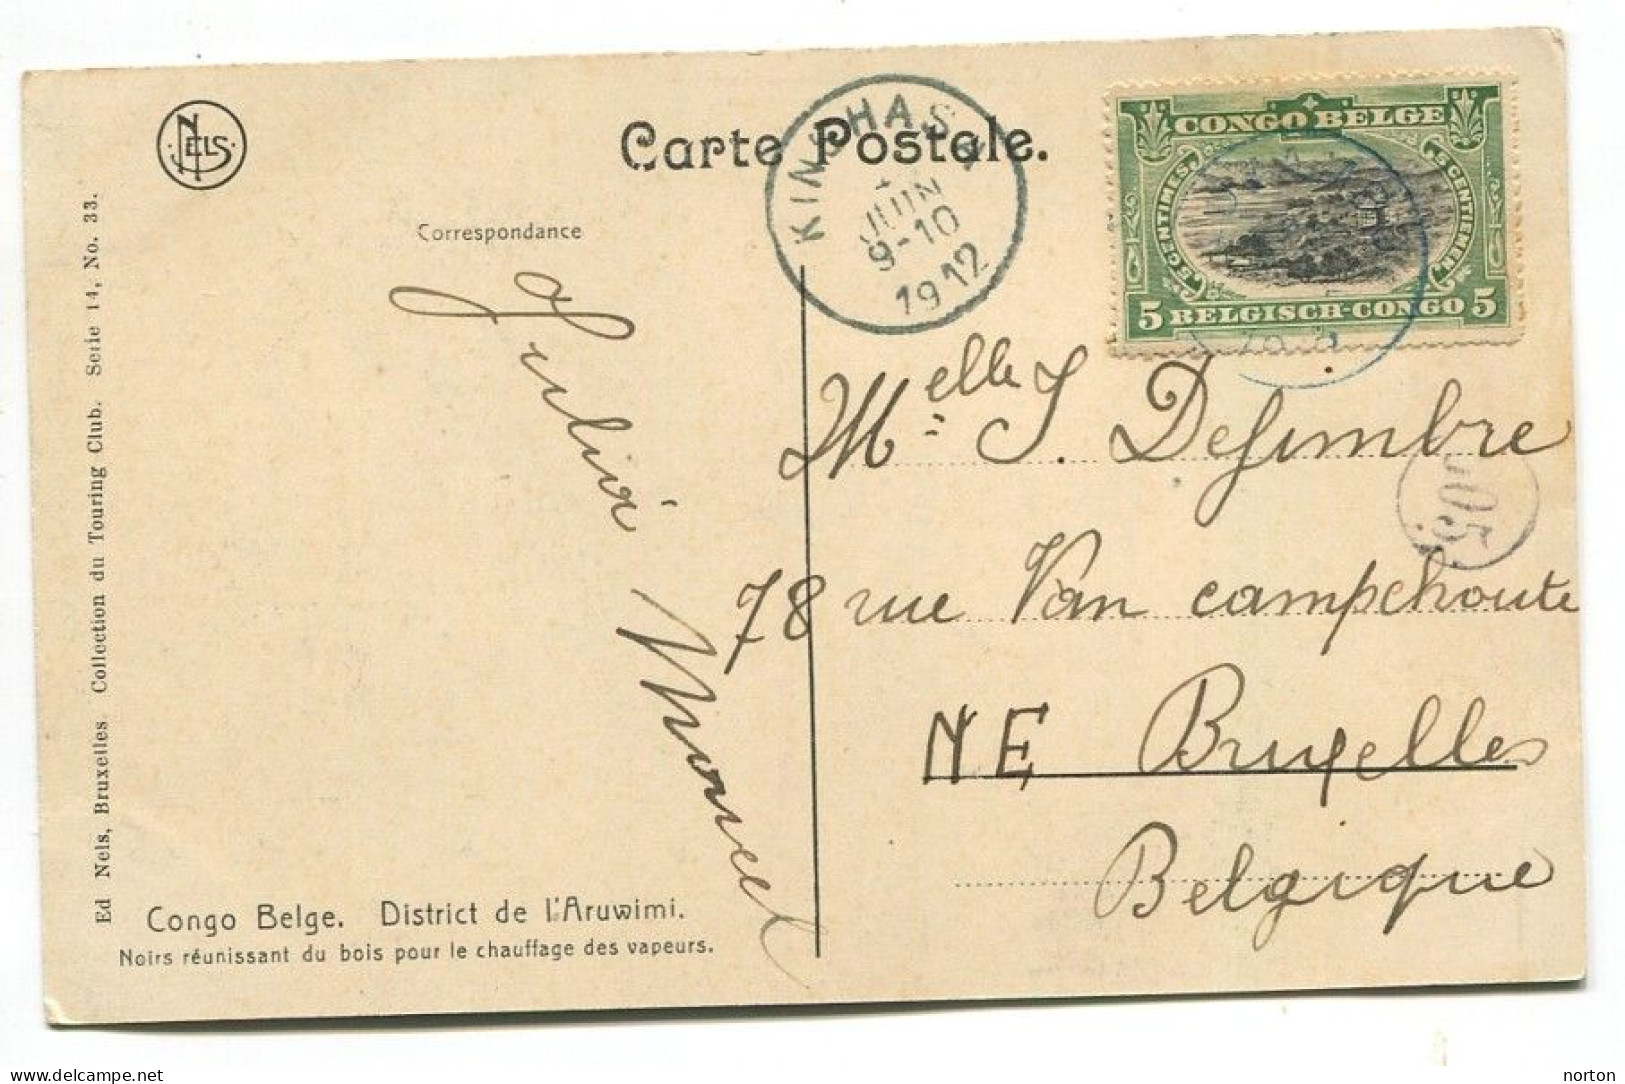 NELS
Carte Postale.
KINSHASA
JUIN
9-10
1912
CONGO BELGE
5 CENTIMES.
5 CENTIEMEN.
5 BELGISCH-CONGO 5
Correspondance
Melle J. Desimbre
505
78 rue Van campenhoute
NE Bruxelles
Belgique
Marcel
Ed Nels, Bruxelles Collection du Touring Club. Serie 14, No. 33.
Congo Belge. District de l'Aruwimi.
Noirs réunissant du bois pour le chauffage des vapeurs.
delcampe.net
norton